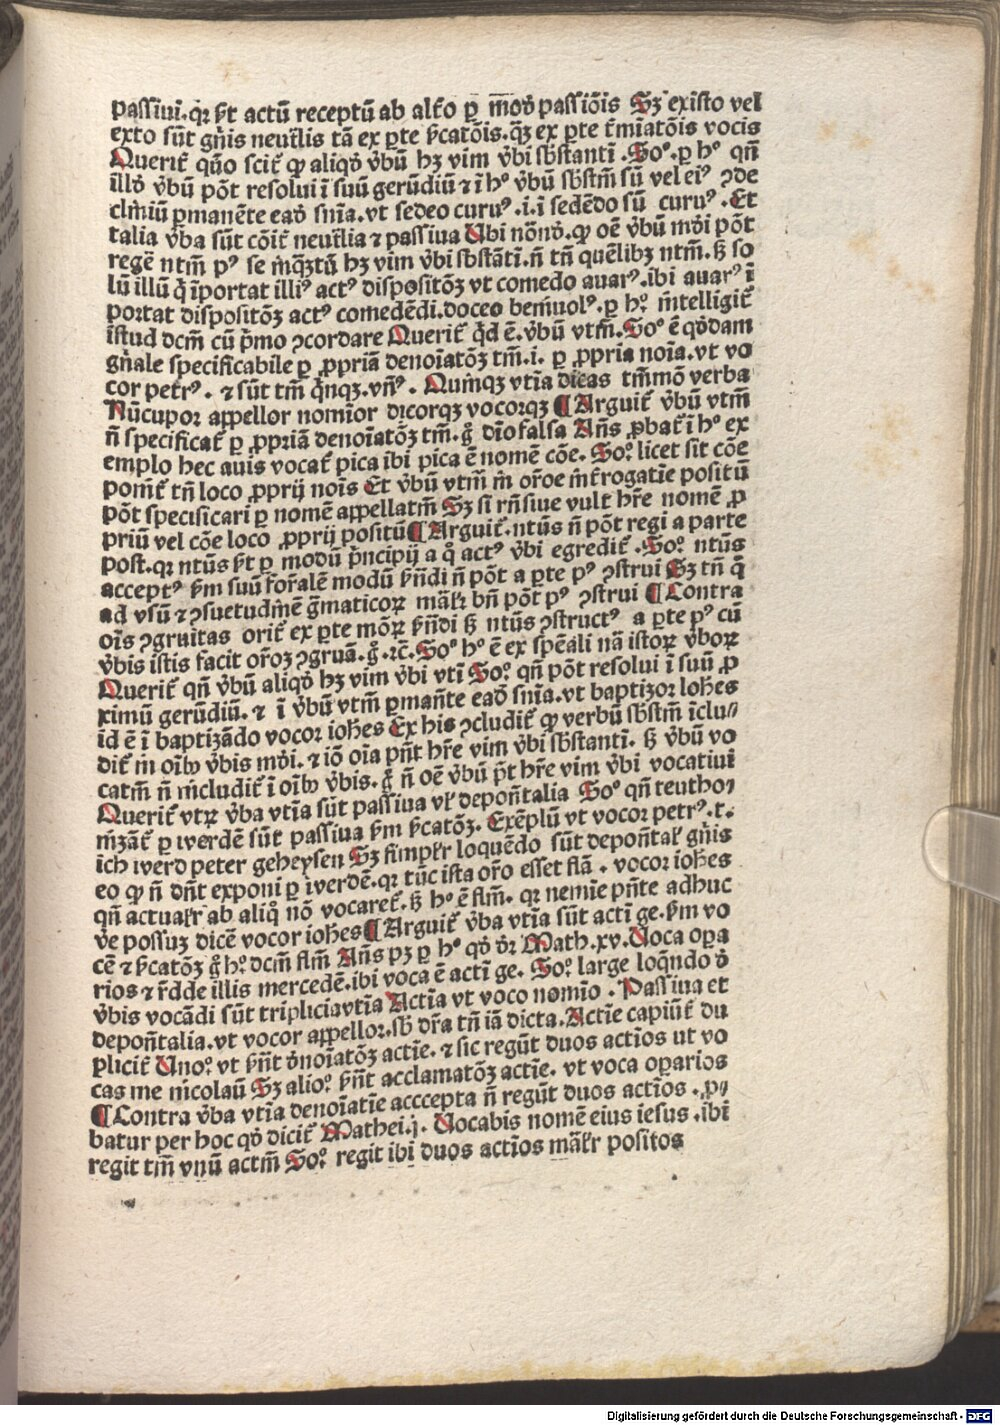 passiui.qꝛ s̄t actū receptū ab alt̄o ꝑ modū passiōis Sꝫ existo vel
exto sūt gn̄is neutͥlis tā ex ꝑte s̄catōis.qꝫ ex ꝑte tͥmīatōis vocis
Querit̄ quō scit̄ ꝙ aliqd̄ v̄bū hꝫ vim v̄bi sb̄stanti .Soº.ꝑ hº qn̄
illd̄ v̄bū pōt resolui ī suū gerūdiū ⁊ ī hº v̄bū sb̄stm̄ sū vel eiꝰ ꝯde
clīniū ꝑmanēte eād̄ snīa.vt sedeo curuꝰ .i.ī sedēdo sū curuꝰ .Et
talia v̄ba sūt cōit̄ neut̄lia ⁊ passiua Ubi nōnd̄.ꝙ oē v̄bū md̄i pōt
regē ntm̄ pꝰ se inq̄ꝫtū hꝫ vim v̄bi sb̄stāti.n̄ tn̄ quēlibꝫ ntm̄.sꝫ so
lū illū q̄ īportat illiꝰ actꝰ dispositōꝫ vt comedo auarꝰ.ibi auarꝰ ī
portat dispositōꝫ actꝰ comedēdi.doceo beniuolꝰ.ꝑ hº intelligit̄
istud dcm̄ cū p̄mo ꝯcordare Querit̄ qd̄ ē.v̄bū vtm̄.Soº ē qd̄dam
gn̄ale specificabile ꝑ ꝓpriā denoīatōꝫ tm̄.i. ꝑ ꝓpria noīa.vt vo
cor petrꝰ. ⁊ sūt tm̄ q̄nqꝫ.vn̄ꝰ . Quinqꝫ vtīa dicas tm̄mō verba
Nūcupor appellor nominor dicorqꝫ vocorqꝫ ¶Arguit̄ v̄bū vtm̄
n̄ specificat̄ ꝑ ꝓpriā denoīatōꝫ tm̄.g̊ dīo falsa An̄s ꝓbat̄ ī hº ex
emplo hec auis vocat̄ pica ibi pica ē nomē cōe. Soº licet sit cōe
ponit̄ tn̄ loco ꝓprij noīs Et v̄bū vtm̄ in or̄oe int̄rogatīe positū
pōt specificari ꝑ nomē appellatm̄ Sꝫ si rn̄siue vult hr̄e nomē ꝓ
priū vel cōe loco ꝓprij positū¶Arguit̄.ntūs n̄ pōt regi a parte
post.qꝛ ntūs s̄t ꝑ modū p̄ncipij a q̊ actꝰ v̄bi egredit̄ .Soº ntūs
acceptꝰ s̄m suū for̄alē modū s̄n̄di n̄ pōt a ꝑte pꝰ ꝯstrui Sꝫ tn̄ q̄
ad vsū ⁊ ꝯsuetudinē gm̄aticoꝝ mālr̄ bn̄ pōt pꝰ ꝯstrui ¶Contra
oīs ꝯgruitas orit̄ ex ꝑte moꝝ s̄n̄di sꝫ ntūs ꝯstructꝰ a ꝑte pꝰ cū
v̄bis istis facit or̄oꝫ ꝯgruā.g̊.ꝛc̄.Soº hº ē ex spēali nā istoꝝ v̄boꝝ
Querit̄ qn̄ v̄bū aliqd̄ hꝫ vim v̄bi vti Soº qn̄ pōt resolui ī suū ꝓ
ximū gerūdiū. ⁊ ī v̄bū vtm̄ ꝑmanēte eād̄ snīa.vt baptizor Ioh̄es
id ē ī baptizādo vocor ioh̄es Ex his ꝯcludit̄ ꝙ verbū sb̄stm̄ īclu⸗
dit̄ in oībꝰ v̄bis md̄i. ⁊ iō oīa pn̄t hr̄e vim v̄bi sb̄stanti. sꝫ v̄bū vo
catm̄ n̄ includit̄ ī oībꝰ v̄bis. g̊ n̄ oē v̄bū pōt hr̄e vim v̄bi vocatiui
Querit̄ vtꝝ v̄ba vtīa sūt passiua vl̄ depon̄talia Soº qn̄ teutho⸗
nizāt̄ ꝑ werdē sūt passiua s̄m s̄catōꝫ. Exēplū vt vocor petrꝰ.t.
ich werd peter geheysen Sꝫ simplr̄ loquēdo sūt depon̄tal̄ gn̄is
eo ꝙ n̄ dn̄t exponi ꝑ werdē.qꝛ tūc ista or̄o esset flā . vocor ioh̄es
qn̄ actualr̄ ab aliq̊ nō vocaret̄.sꝫ hº ē flm̄. qꝛ nemīe pn̄te adhuc
v̄e possuꝫ dicē vocor ioh̄es¶Arguit̄ v̄ba vtīa sūt acti ge.s̄m vo
cē ⁊ s̄catōꝫ g̊ hº dcm̄ flm̄ An̄s pꝫ ꝑ hº qd̄ dr̄ Math.xv.Uoca oꝑa
rios ⁊ r̄dde illis mercedē.ibi voca ē acti ge. Soº large loqn̄do d̄
v̄bis vocādi sūt tripliciavtīa Actīa vt voco nomīo . Passiua et
depon̄talia.vt vocor appellor.sb̄ dr̄a tn̄ iā dicta.Actīe capiūt̄ du
plicit̄ Unoº vt s̄n̄t d̄noīatōꝫ actīe. ⁊ sic regūt duos actīos ut vo
cas me nicolaū Sꝫ alioº s̄n̄t acclamatōꝫ actīe. vt voca oꝑarios
¶Contra v̄ba vtīa denoīatīe acccepta n̄ regūt duos actīos . ꝓ⸗
batur per hoc qd̄ dicit̄ Mathei.j. Uocabis nomē eius iesus .ibi
regit tm̄ vnū actm̄ Soº regit ibi duos actīos mālr̄ positos
Digitalisierung gefördert durch die Deutsche Forschungsgemeinschaft - DFG